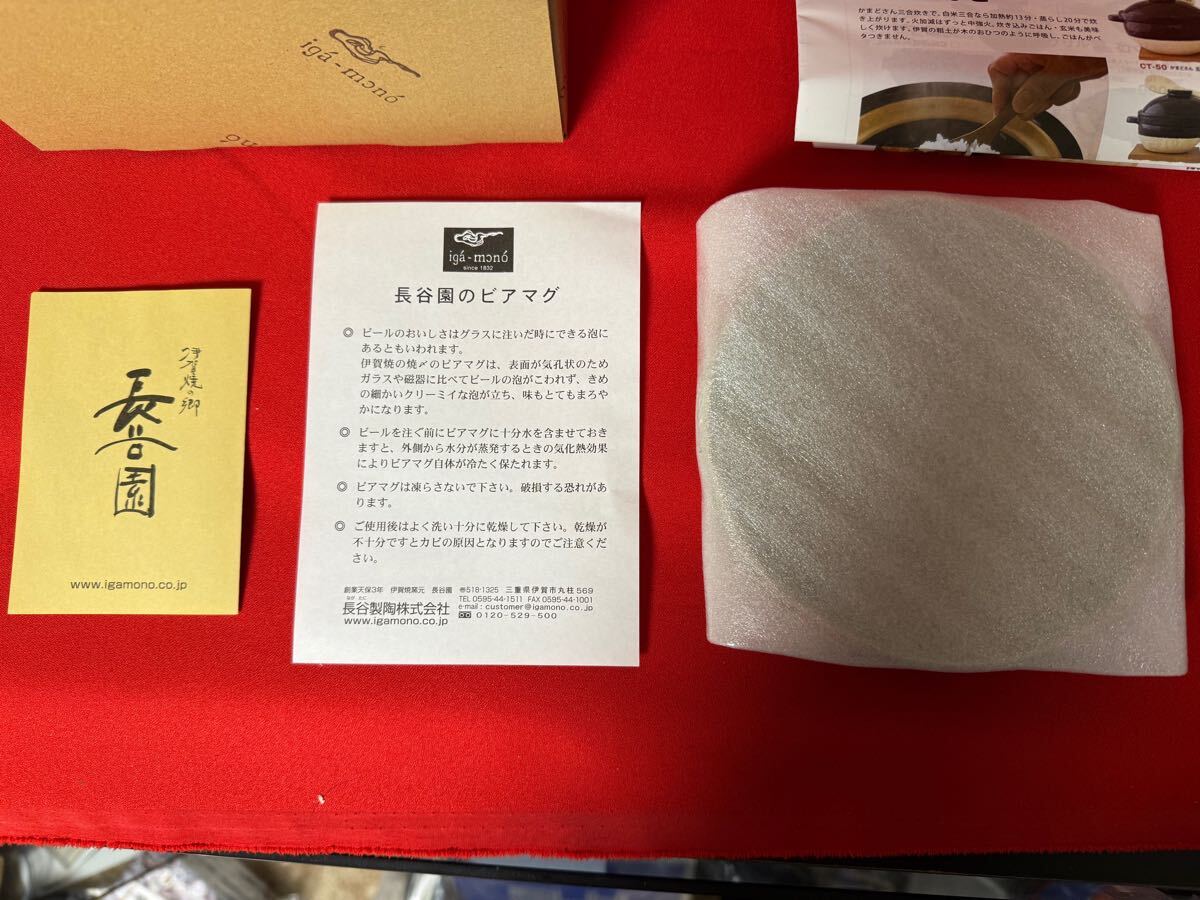 igá-mɔnó
かまどさん三合炊きで。白米三合なら加熱約13分・蒸らし20分で炊
き上がります。火加減はずっと中強火。炊き込みごはん・玄米も美味
しく炊けます。伊賀の粗土が木のおひつのように呼吸し、ごはんがベ
タつきません。
CT-50 かまどさん
伊賀焼の郷
長谷園
www.igamono.co.jp
igá-mɔnó
since 1832
長谷園のビアマグ
◎ ビールのおいしさはグラスに注いだ時にできる泡に
あるともいわれます。
伊賀焼の焼〆のビアマグは、表面が気孔状のため
ガラスや磁器に比べてビールの泡がこわれず、きめ
の細かいクリーミイな泡が立ち、味もとてもまろや
かになります。
◎ ビールを注ぐ前にビアマグに十分水を含ませておき
ますと、外側から水分が蒸発するときの気化熱効果
によりビアマグ自体が冷たく保たれます。
◎ ビアマグは凍らさないで下さい。破損する恐れがあ
ります。
◎ ご使用後はよく洗い十分に乾燥して下さい。乾燥が
不十分ですとカビの原因となりますのでご注意くだ
さい。
創業天保3年 伊賀焼窯元 長谷園 〒518-1325 三重県伊賀市丸柱569
なが たに
長谷製陶株式会社 TEL 0595-44-1511 FAX 0595-44-1001
e-mail : customer@igamono.co.jp
www.igamono.co.jp 0120-529-500